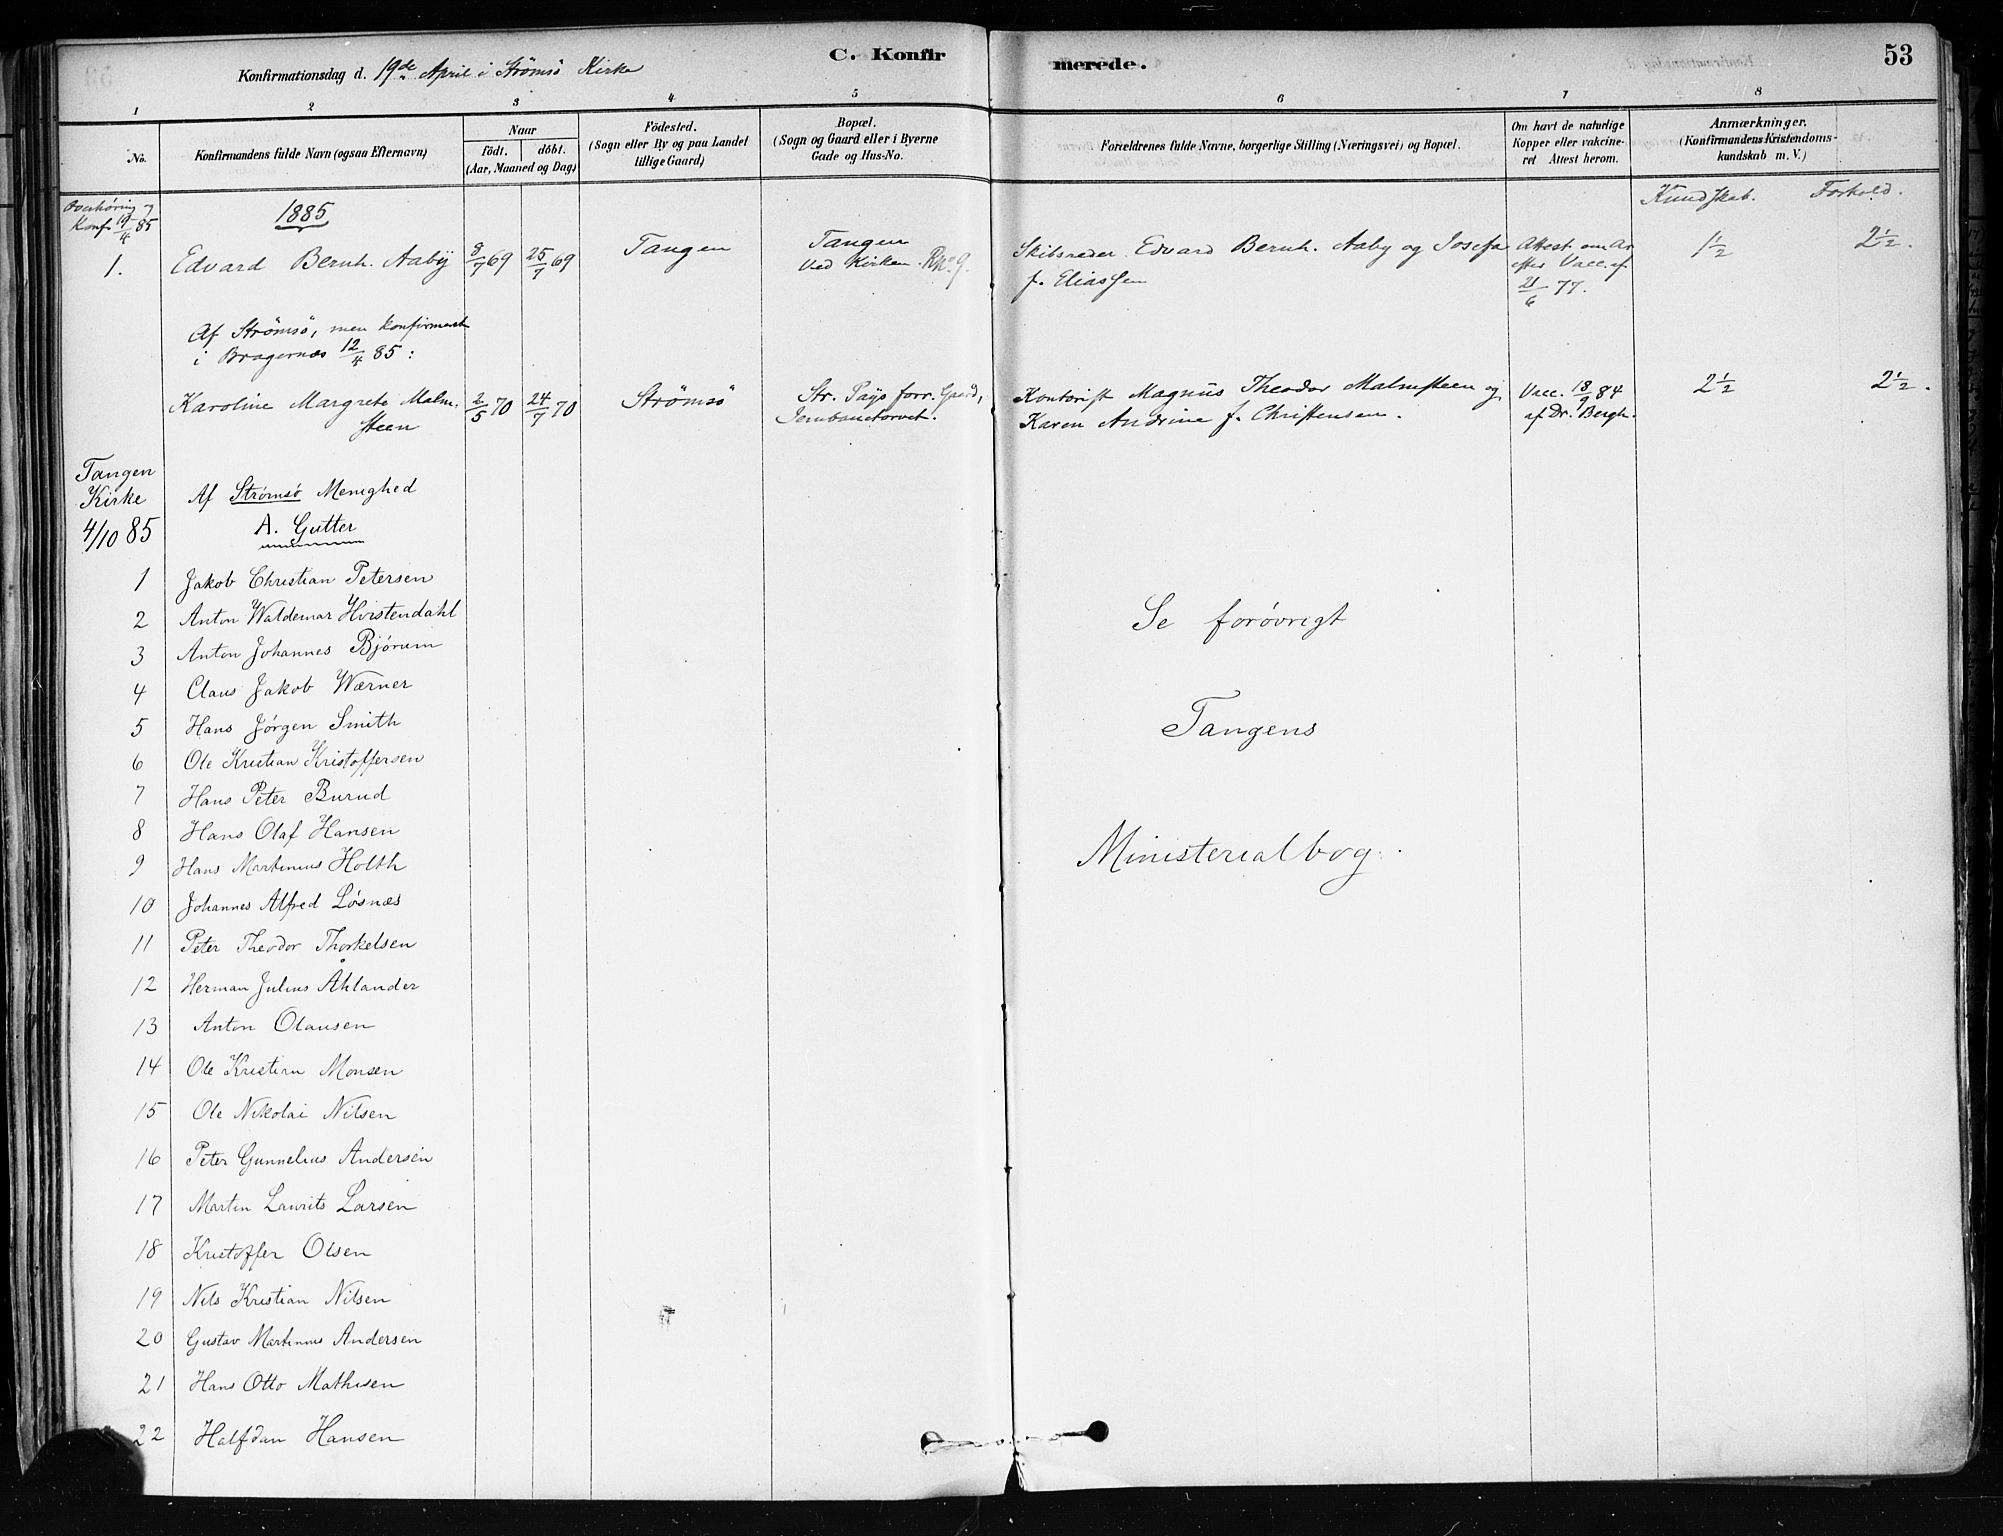 C. Konfirmerede.
53
Konfirmationsdag d. 19de April i Strømsø Kirke
1 2 3 4 5 6 7 8
No.
Konfirmandens fulde Navn (ogsaa Efternavn)
Naar
födt. döbt.
(Aar, Maaned og Dag)
Födested.
(Sogn eller By og paa Landet
tillige Gaard)
Bopæl.
(Sogn og Gaard eller i Byerne
Gade og Hus-No.
Forældrenes fulde Navne, borgerlige Stilling (Næringsvei) og Bopæl.
Om havt de naturlige
Kopper eller vakcine-
ret Attest herom.
Anmærkninger.
(Konfirmandens Kristendoms-
kundskab m. V.)
Kundskab. Forhold.
Overhøring og
Konf. 19/4 85
1885
1. Edvard Bernh. Aaby 8/7 69 25/7 69 Tangen Tangen Skibsreder Edvard Bernh. Aaby og Josefa Attest om Ar 1½ 2½.
ved Kirken. No. 9. f. Eliassen efter Vacc. af
21/6 77.
Af Strømsø, men konfirmeret
i Bragernæs 12/4 85:
Karoline Margrete Malm- 2/5 70 24/7 70 Strømsø Str. Pays forr. Gaard, Kontorist Magnus Theodor Malmsteen og Vacc. 18/9 84 2½ 2½.
steen Jernbanetorvet. Karen Andrine f. Christensen. af Dr. Bergh.
Tangen
Kirke
4/10 85
Af Strømsø Menighed
A. Gutter
1 Jakob Christian Petersen
2 Anton Waldemar Hvistendahl
3 Anton Johannes Bjørum
4 Claus Jakob Wærner
5 Hans Jørgen Smith
6 Ole Kristian Kristoffersen
7 Hans Peter Burud
8 Hans Olaf Hansen
9 Hans Martinius Holth
10 Johannes Alfred Løsnæs
11 Peter Theodor Thorkelsen
12 Herman Julius Åhlander
13 Anton Olausen
14 Ole Kristian Monsen
15 Ole Nikolai Nilsen
16 Peter Gunnelius Andersen
17 Martin Laurits Larsen
18 Kristoffer Olsen
19 Nils Kristian Nilsen
20 Gustav Martinius Andersen
21 Hans Otto Mathisen
22 Halfdan Hansen
Se forøvrigt
Tangens
Ministerialbog.